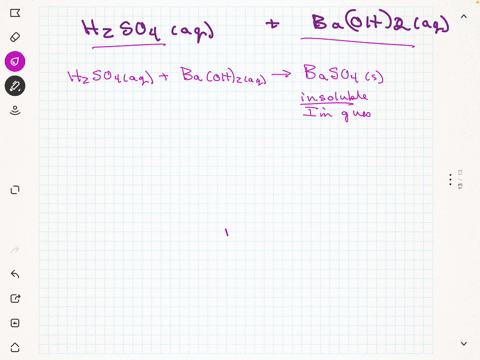 H2SO4 (aq) + Ba(OH)2 (aq)
H2SO4(aq) + Ba(OH)2(aq) → BaSO4(s)
insoluble
Im gues
13 / 13